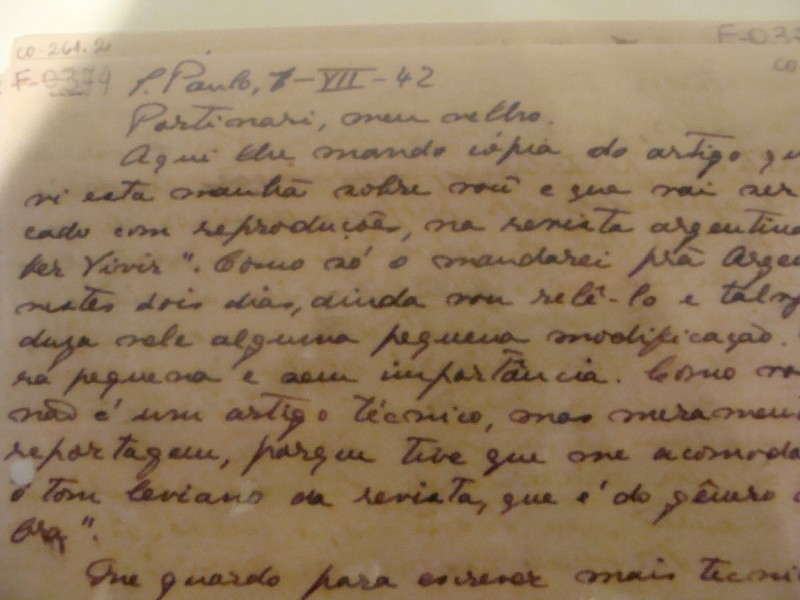 CO-261.2
F-0374
F-037
CO
S. Paulo, 7-VII-42
Portinari, meu velho.
Aqui lhe mando cópia do artigo qu
vi esta manhã sobre você e que vai ser
cado com reproduções, na revista argentina
ber Vivir". Como só o mandarei prà Argen
nestes dois dias, ainda vou relê-lo e talvez
duza nele alguma pequena modificação.
rá pequena e sem importância. Como vo
não é um artigo técnico, mas meramen
reportagem, porque tive que me acomoda
o tom leviano da revista, que é do gênero
bra".
Me guardo para escrever mais tecni